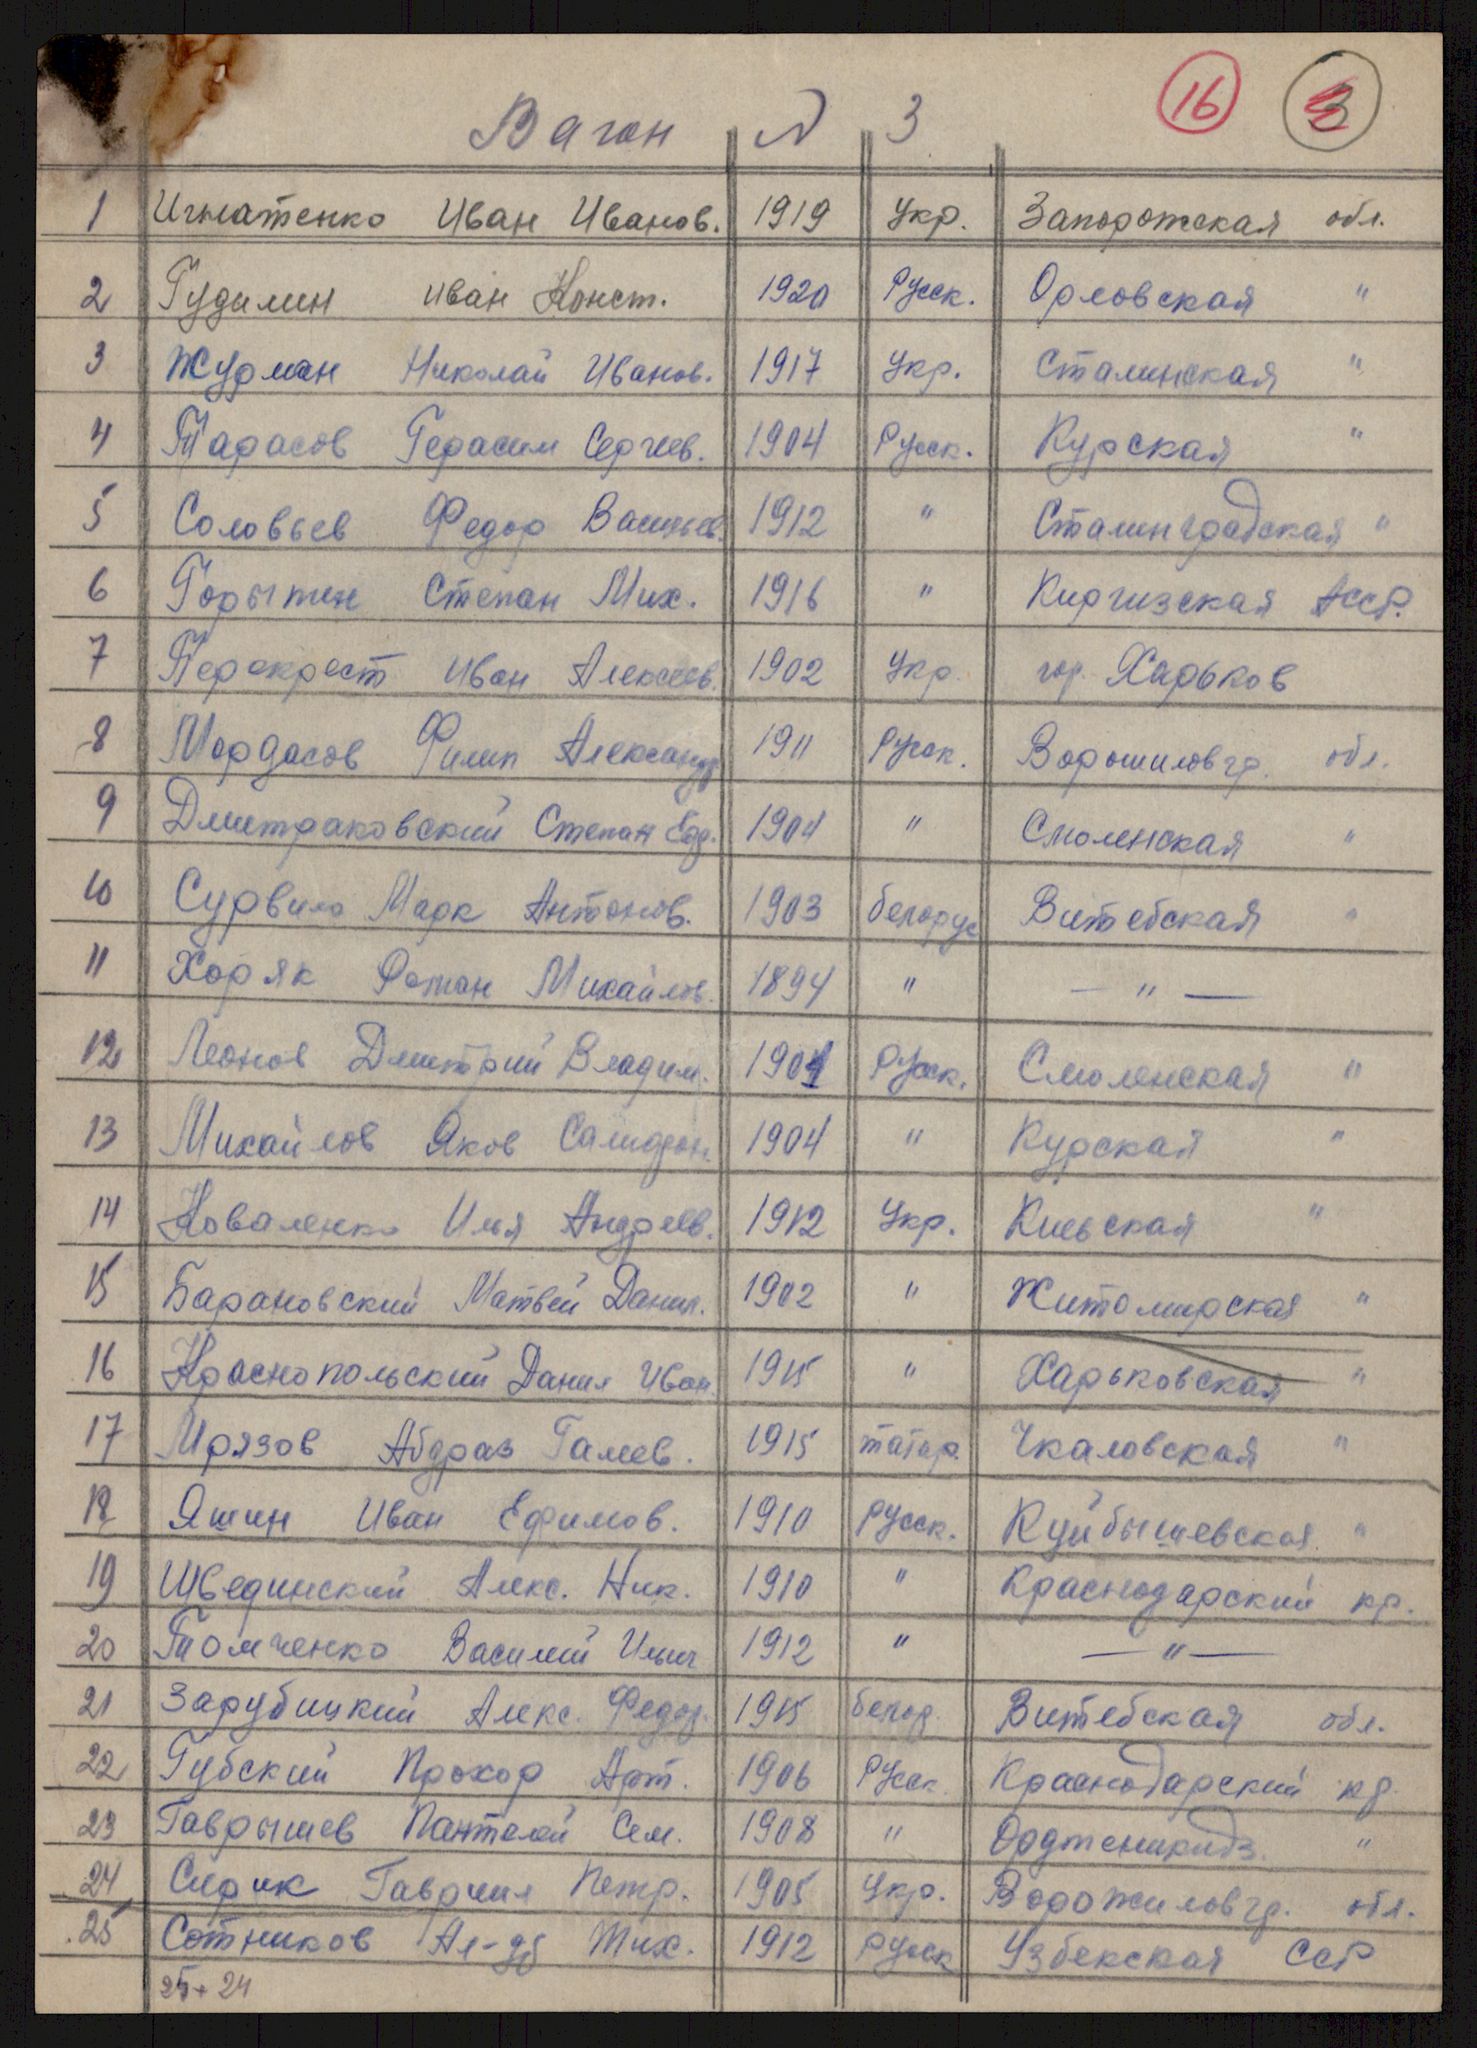 Вагон № 3 16 3
1 Игнатенко Иван Иванов. 1919 Укр. Запорожская обл.
2 Гудилин Иван Конст. 1920 Русск. Орловская "
3 Журман Николай Иванов. 1917 Укр. Сталинская "
4 Тарасов Герасим Сергеев. 1904 Русск. Курская "
5 Соловьев Федор Васильев. 1912 " Сталинградская "
6 Горыпин Степан Мих. 1916 " Киргизская АССР.
7 Перекрест Иван Алексеев. 1902 Укр. гор. Харьков
8 Мордасов Филип Александр 1911 Русск. Ворошиловгр. обл.
9 Дмитраковский Степан Егр. 1904 " Смоленская "
10 Сурвило Марк Антонов. 1903 белорус Витебская "
11 Хоряк Роман Михайлов. 1894 " — " —
12 Леонов Дмитрий Владим. 1904 Русск. Смоленская "
13 Михайлов Яков 1904 " Курская "
14 Коваленко Илья Андреев. 1912 Укр. Киевская "
15 Барановский Матвей Данил. 1902 " Житомирская "
16 Краснопольский Данил Иван. 1915 " Харьковская "
17 Мрязов Абдраз Галеев. 1915 татар. Чкаловская "
18 Яшин Иван Ефимов. 1910 Русск. Куйбышевская "
19 Щвединский Алекс. Ник. 1910 " Краснодарский кр.
20 Томченко Василий Ильич 1912 " — " —
21 Зарубицкий Алекс. Федор. 1915 белор. Витебская обл.
22 Губский Прохор Арт. 1906 Русск. Краснодарский кр.
23 Гаврышев Пантелей Сем. 1908 " Орджоникидз. "
24 Сирик Гаврил Петр. 1905 Укр. Ворожиловгр. обл.
25 Сотников Ал-др Тих. 1912 Русск Узбекская ССР
25+24